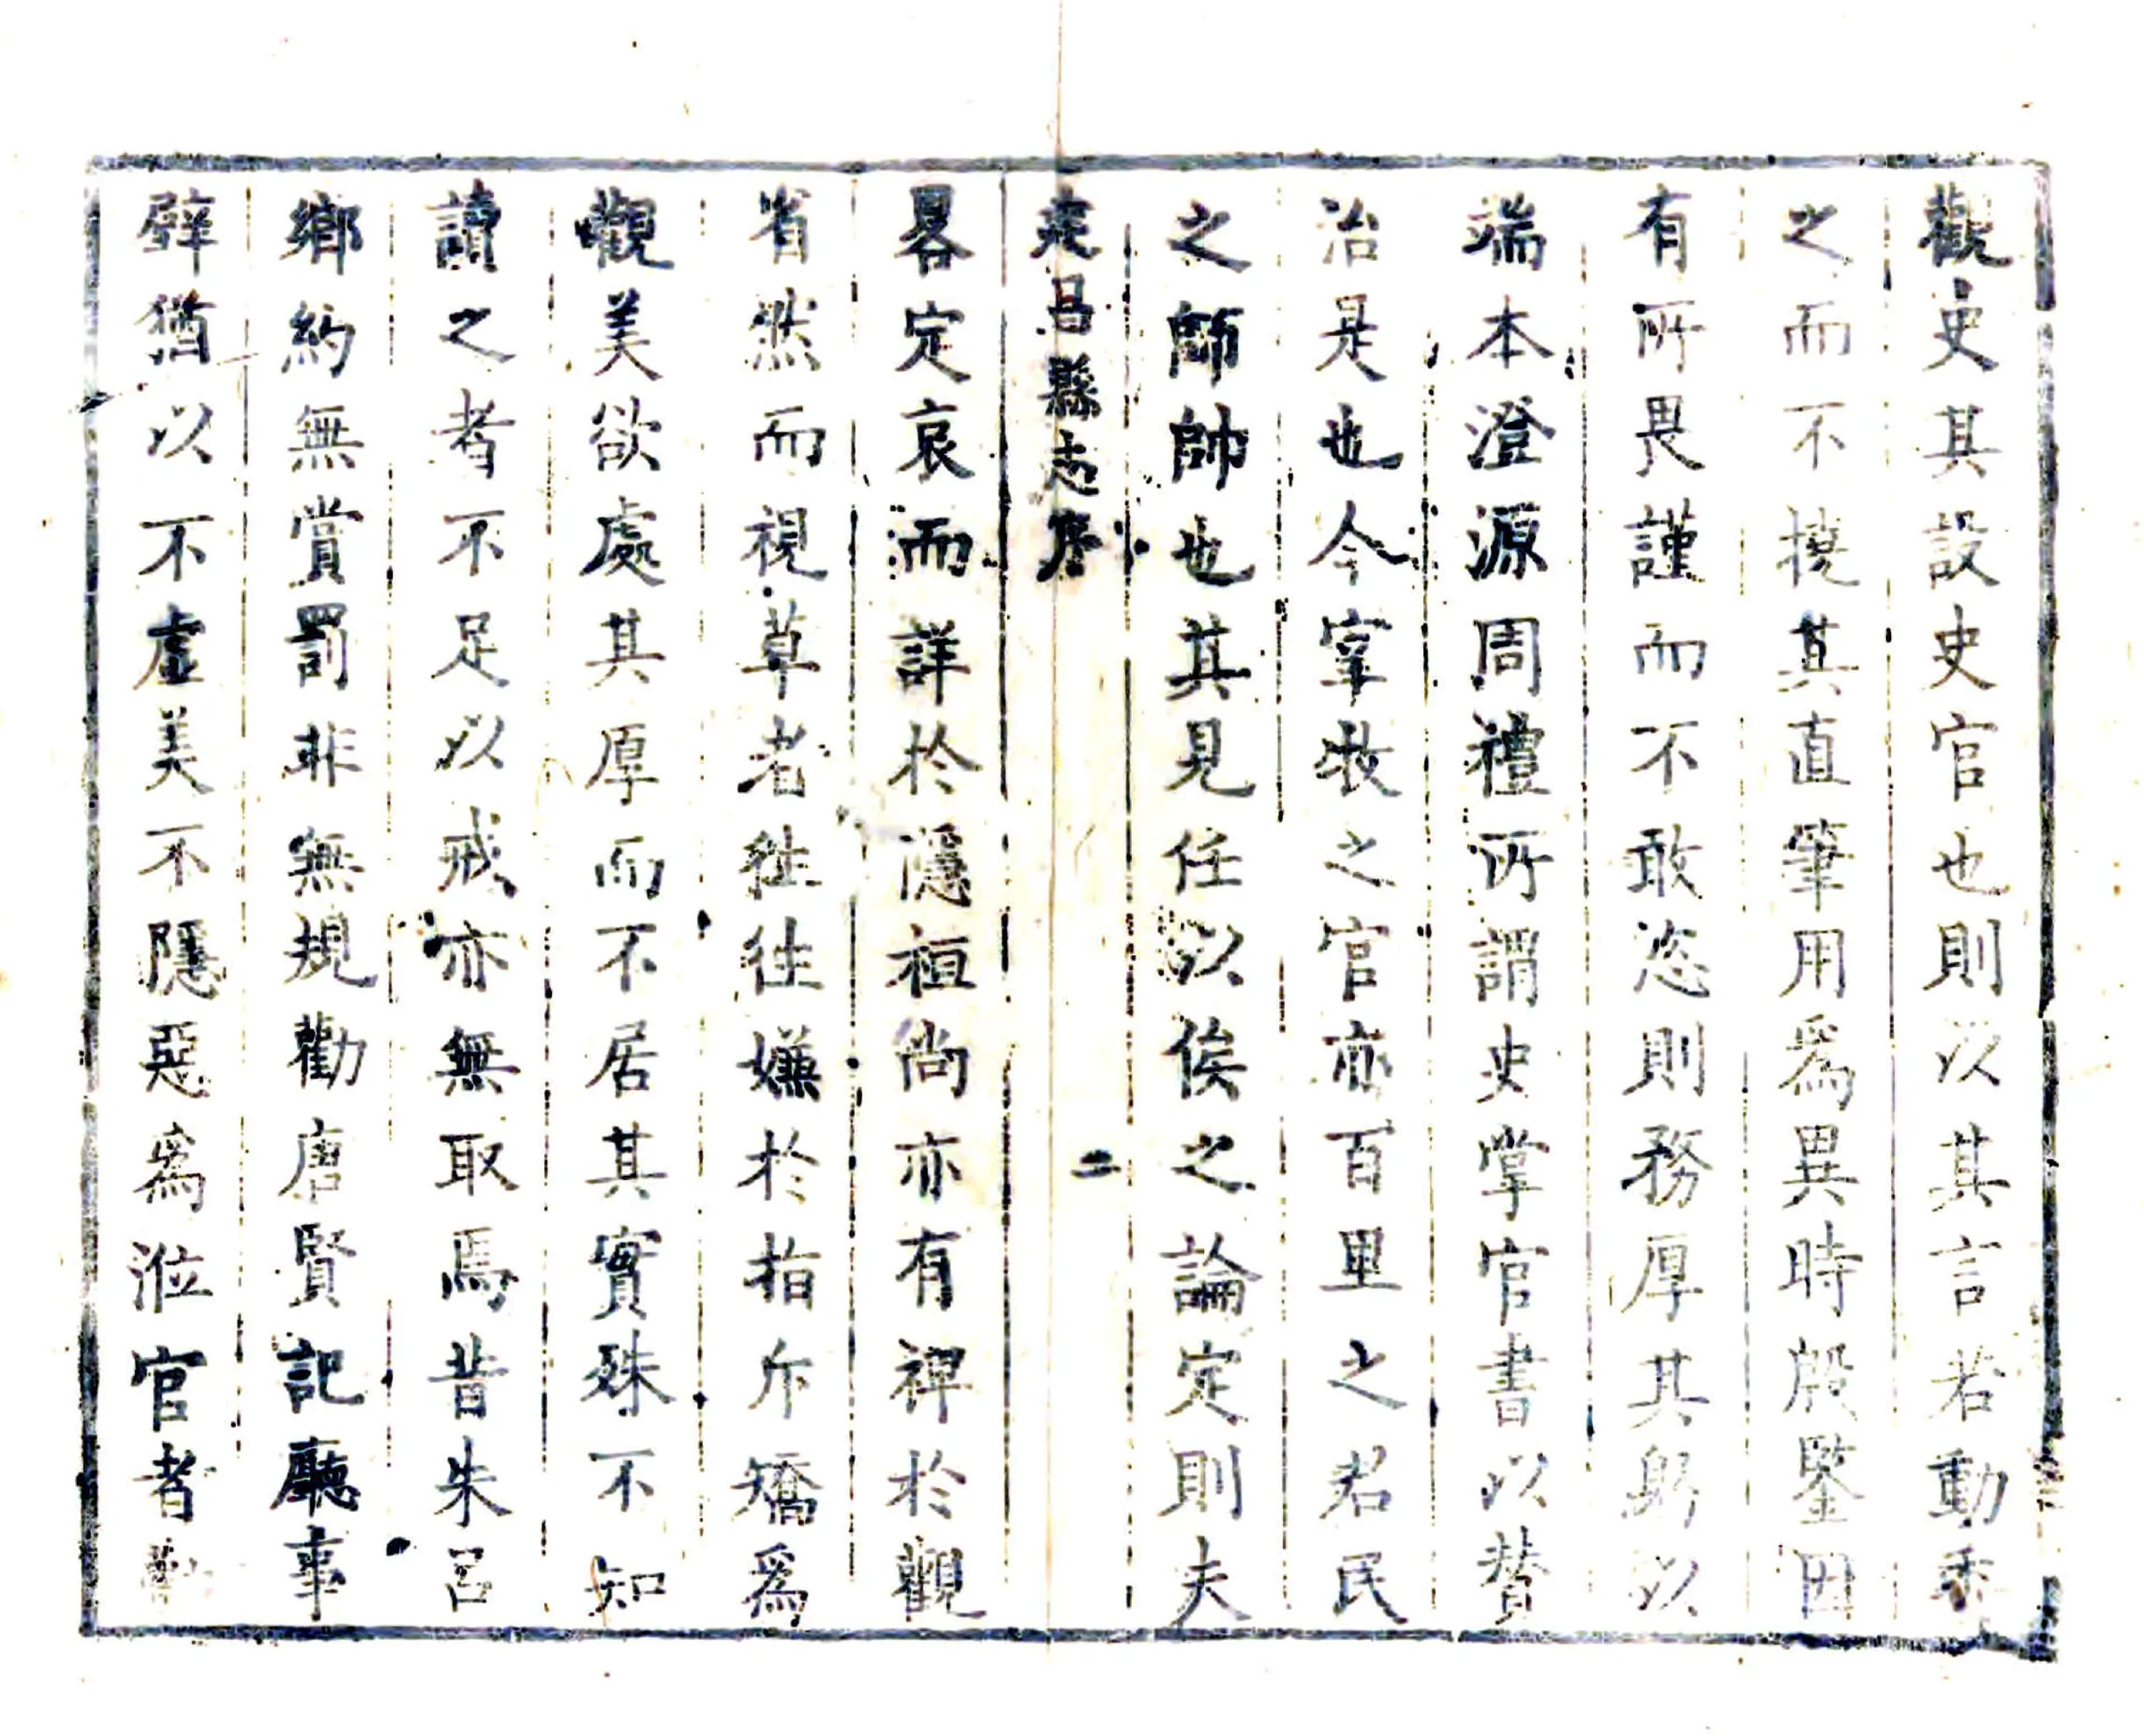 觀史其設史官也則以其言若動委
之而不撓其直筆用爲異時殷鑒因
有所畏謹而不敢恣則務厚其躬以
端本澄源周禮所謂史掌官書以贊
治是也今宰牧之官亦百里之君民
之師帥也其見任以俟之論定則夫
昌縣志序
二
畧定哀而詳於隱桓尚亦有裨於觀
省然而視草者徃往嫌於指斥矯爲
觀美欲處其厚而不居其實殊不知
讀之者不足以戒亦無取焉昔朱呂
鄉約無賞罰非無規勸唐賢記廳事
壁猶以不虛美不隱惡爲涖官者